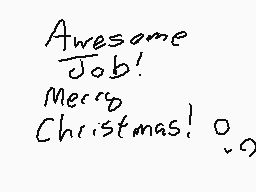 Awesome
Job!
Merry
Christmas!